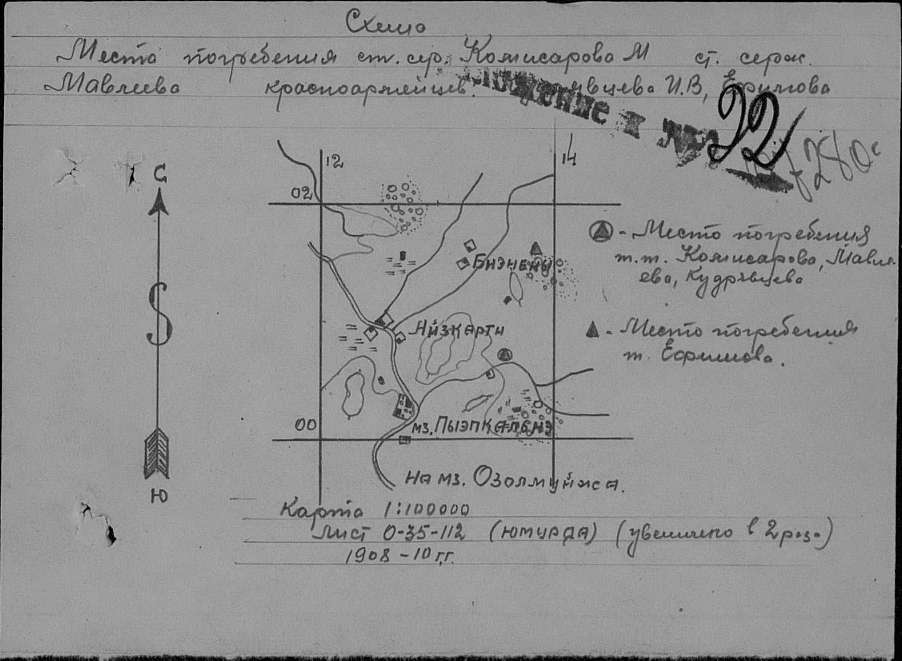 Схема
Место погребения ст. сер. Комисарова М ст. серж.
Мавлеева красноармейцев. И.В, Ефимова
22
280
С
Ю
12
14
02
00
Бнэнены
Айзкарти
мз. Пыэпкальнэ
на мз. Озолмуйжа.
- Место погребения
т.т. Комисарова, Мавле
ева, Кудрявцева
- Место погребения
т. Ефимова.
Карта 1:100000
Лист О-35-112 (юмурда) (увеличено в 2 раза)
1908-10 гг.